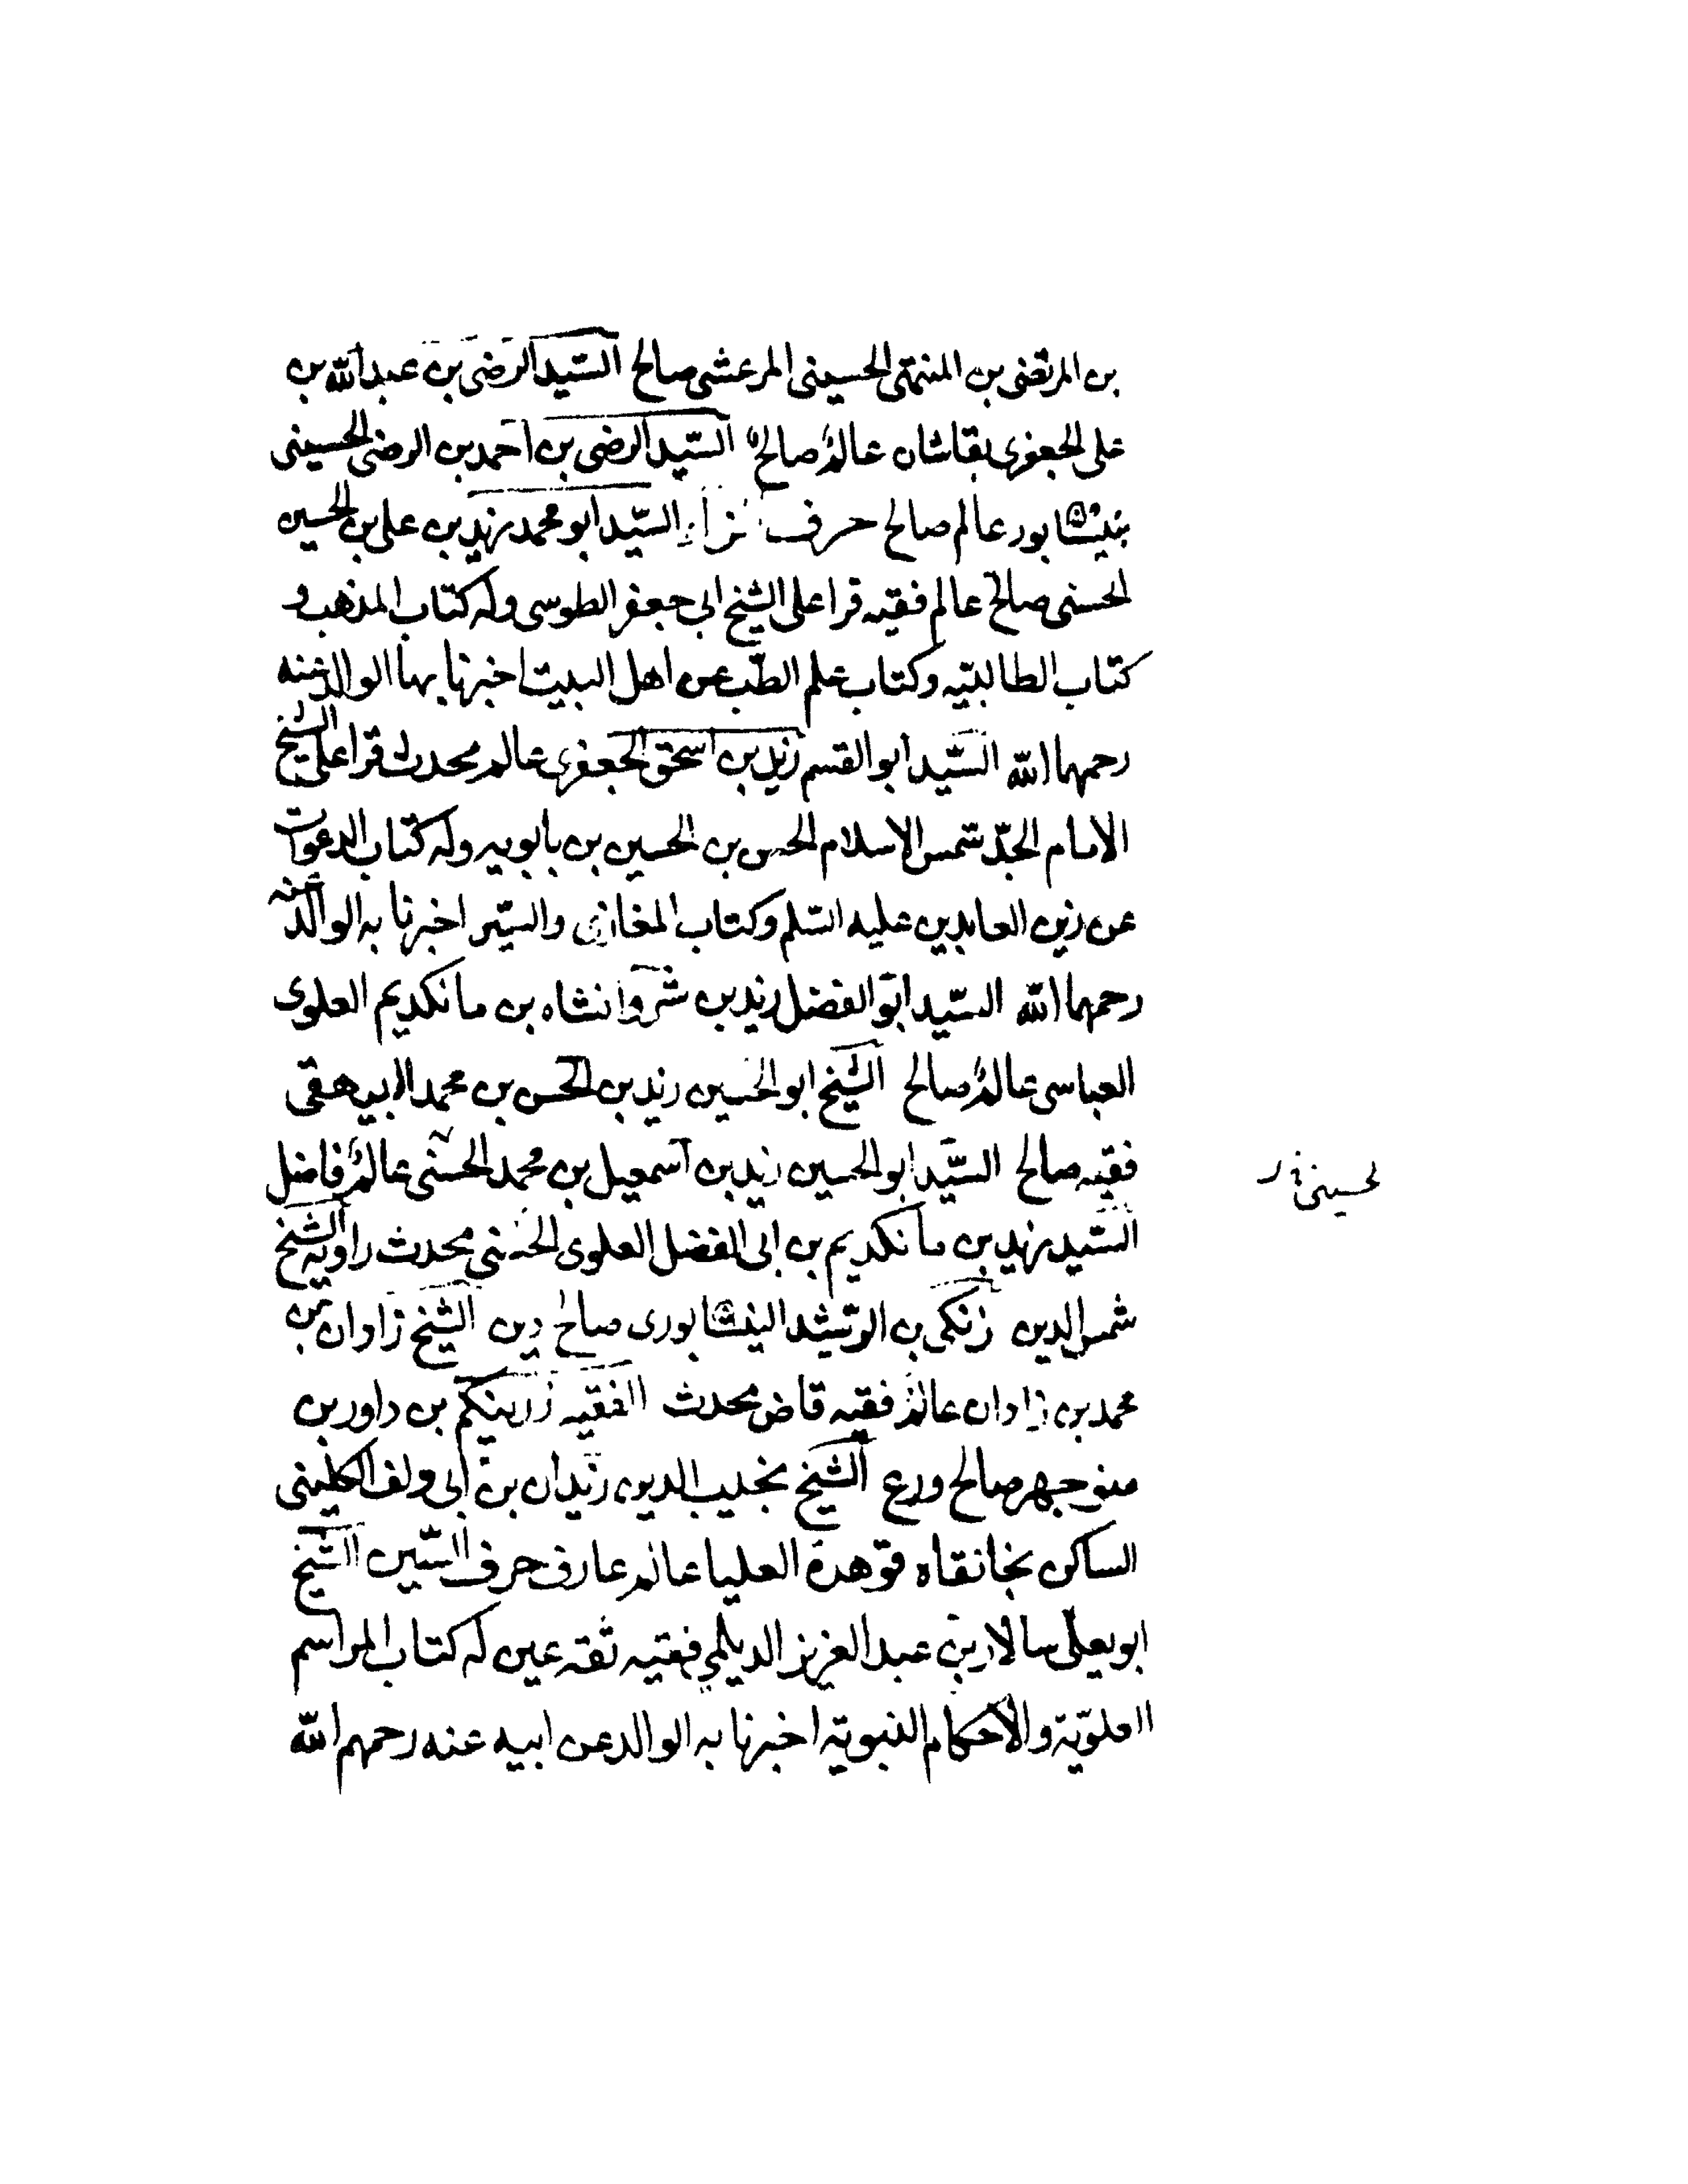 بن المرتضى بن المنتهى الحسينى المرعشى صالح السّيد الرضى بن عبد الله بن
على الجعفرى بقاشان عالم صالح السّيد الرضى بن احمد بن الرضى الحسينى
بنيشابور عالم صالح حرف الزاء السّيد ابو محمد زيد بن على بن الحسين
الحسنى صالح عالم فقيه قرا على الشيخ ابى جعفر الطوسى وله كتاب المذهب و
كتاب الطالبيّه وكتاب علم الطبّ عن اهل البيت اخبرنا بها الوالد عنه
رحمهما الله السّيد ابو القسم زيد بن اسحق الجعفرى عالم محدث قرا على الشيخ
الامام الجدّ شمس الاسلام الحسن بن الحسين بن بابويه وله كتاب الدعوات
عن زين العابدين عليه السّلم وكتاب المغازى والسّير اخبرنا به الوالد عنه
رحمهما الله السّيد ابو الفضل زيد بن شروانشاه بن مانكديم العلوى
العباسى عالم صالح الشيخ ابو الحسين زيد بن الحسن بن محمد البيهقى
فقيه صالح السّيد ابو الحسين زيد بن اسمعيل بن محمد الحسنى عالم فاضل
لحسينى
السّيد زيد بن مانكديم بن ابى الفضل العلوى الحسنى محدث راويه الشيخ
شمس الدين زنكى بن الرّشيد النيشابورى صالح دين الشيخ زادان بن
محمد بن زادان عالم فقيه قاض محدث الفقيه زرينكم بن داور بن
منوجهر صالح ورع الشيخ نجيب الدين زيدان بن ابى دلف الكلينى
الساكن بخانقاه قوهدة العليا عالم عارف حرف السّين الشيخ
ابو يعلى سالار بن عبد العزيز الديلمي فقيه ثقة عين له كتاب المراسم
العلويّة والأحكام النبويّة اخبرنا به الوالد عن ابيه عنه رحمهم الله